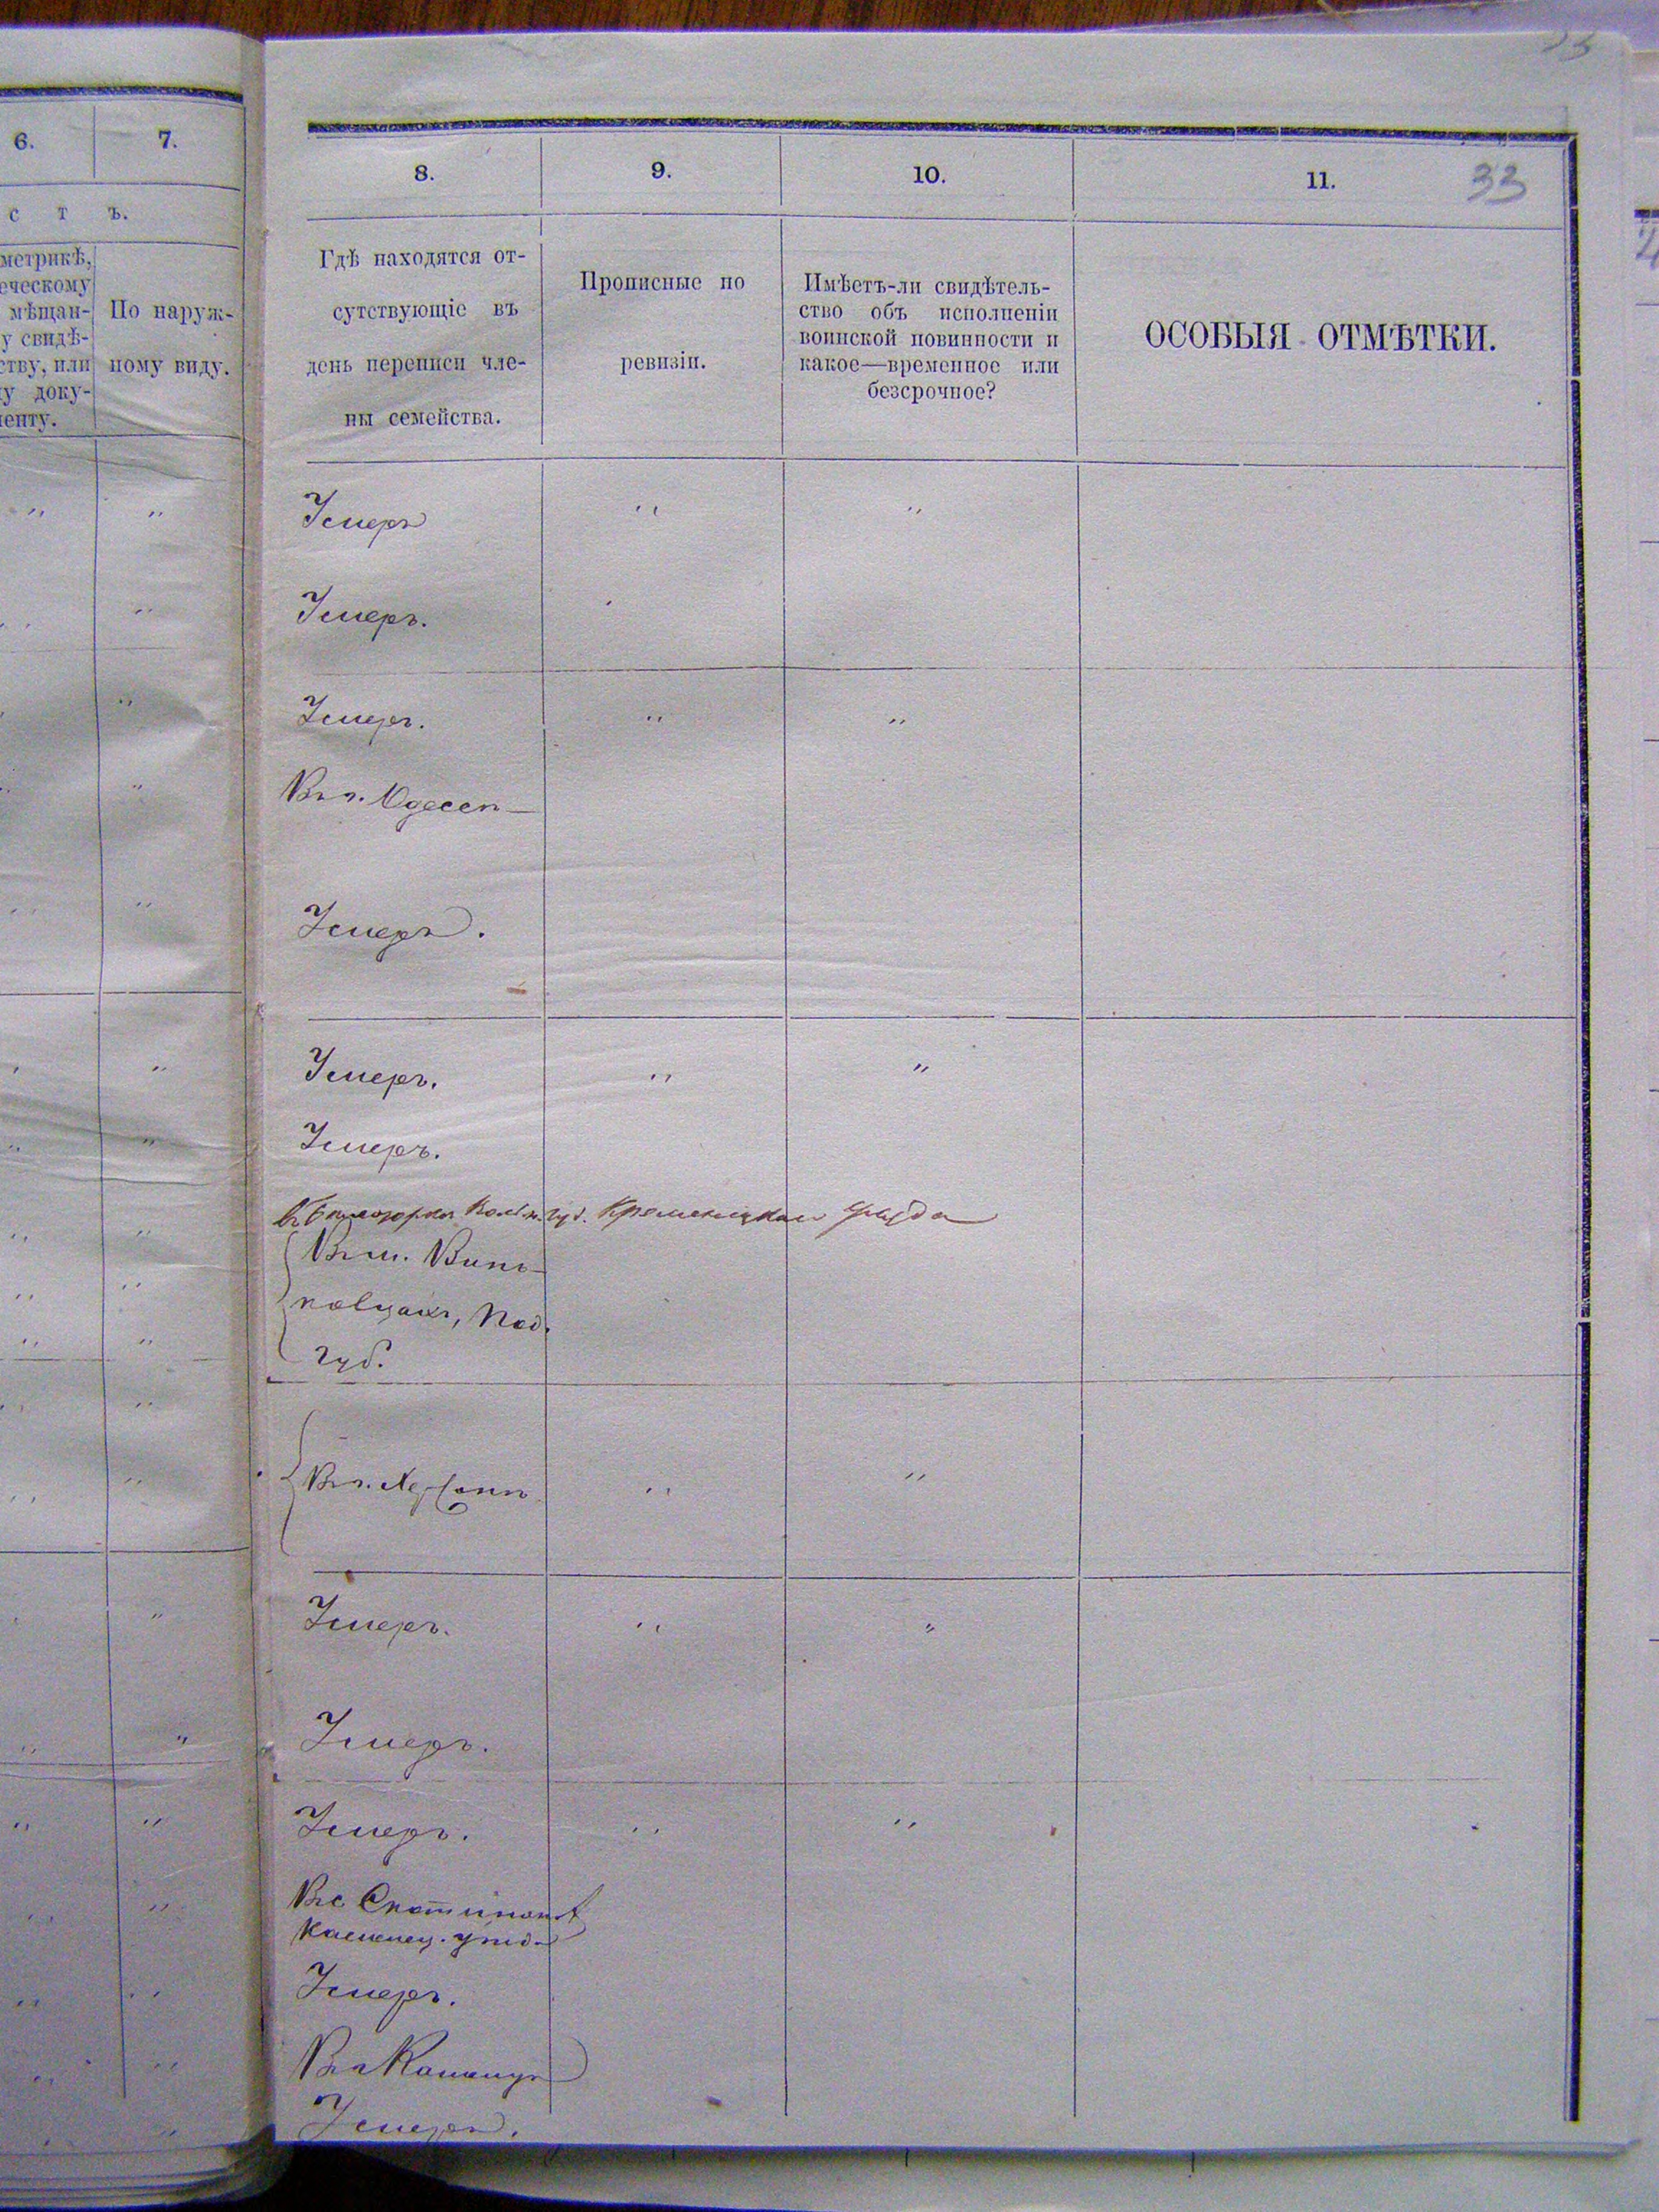 6.
7.
с т ъ.
метрикѣ,
еческому
мѣщан-
у свидѣ-
ству, или
у доку-
енту.
По наруж-
ному виду.
33
8.
9.
10.
11.
33
Гдѣ находятся от-
сутствующіе въ
день переписи чле-
ны семейства.
Прописные по
ревизіи.
Имѣетъ-ли свидѣтель-
ство объ исполненіи
воинской повинности и
какое—временное или
безсрочное?
ОСОБЫЯ ОТМѢТКИ.
Умеръ
Умеръ.
Умеръ.
Въ г. Одессѣ
Умеръ.
Умеръ.
Умеръ.
губ. Кременецкаго уѣзда
Въ м. Винь-
ковцахъ, Под.
губ.
Въ г. Херсонѣ
Умеръ.
Умеръ.
Умеръ.
Въ с
Каменец. уѣзда
Умеръ.
Въ г Каменцѣ
Умеръ.